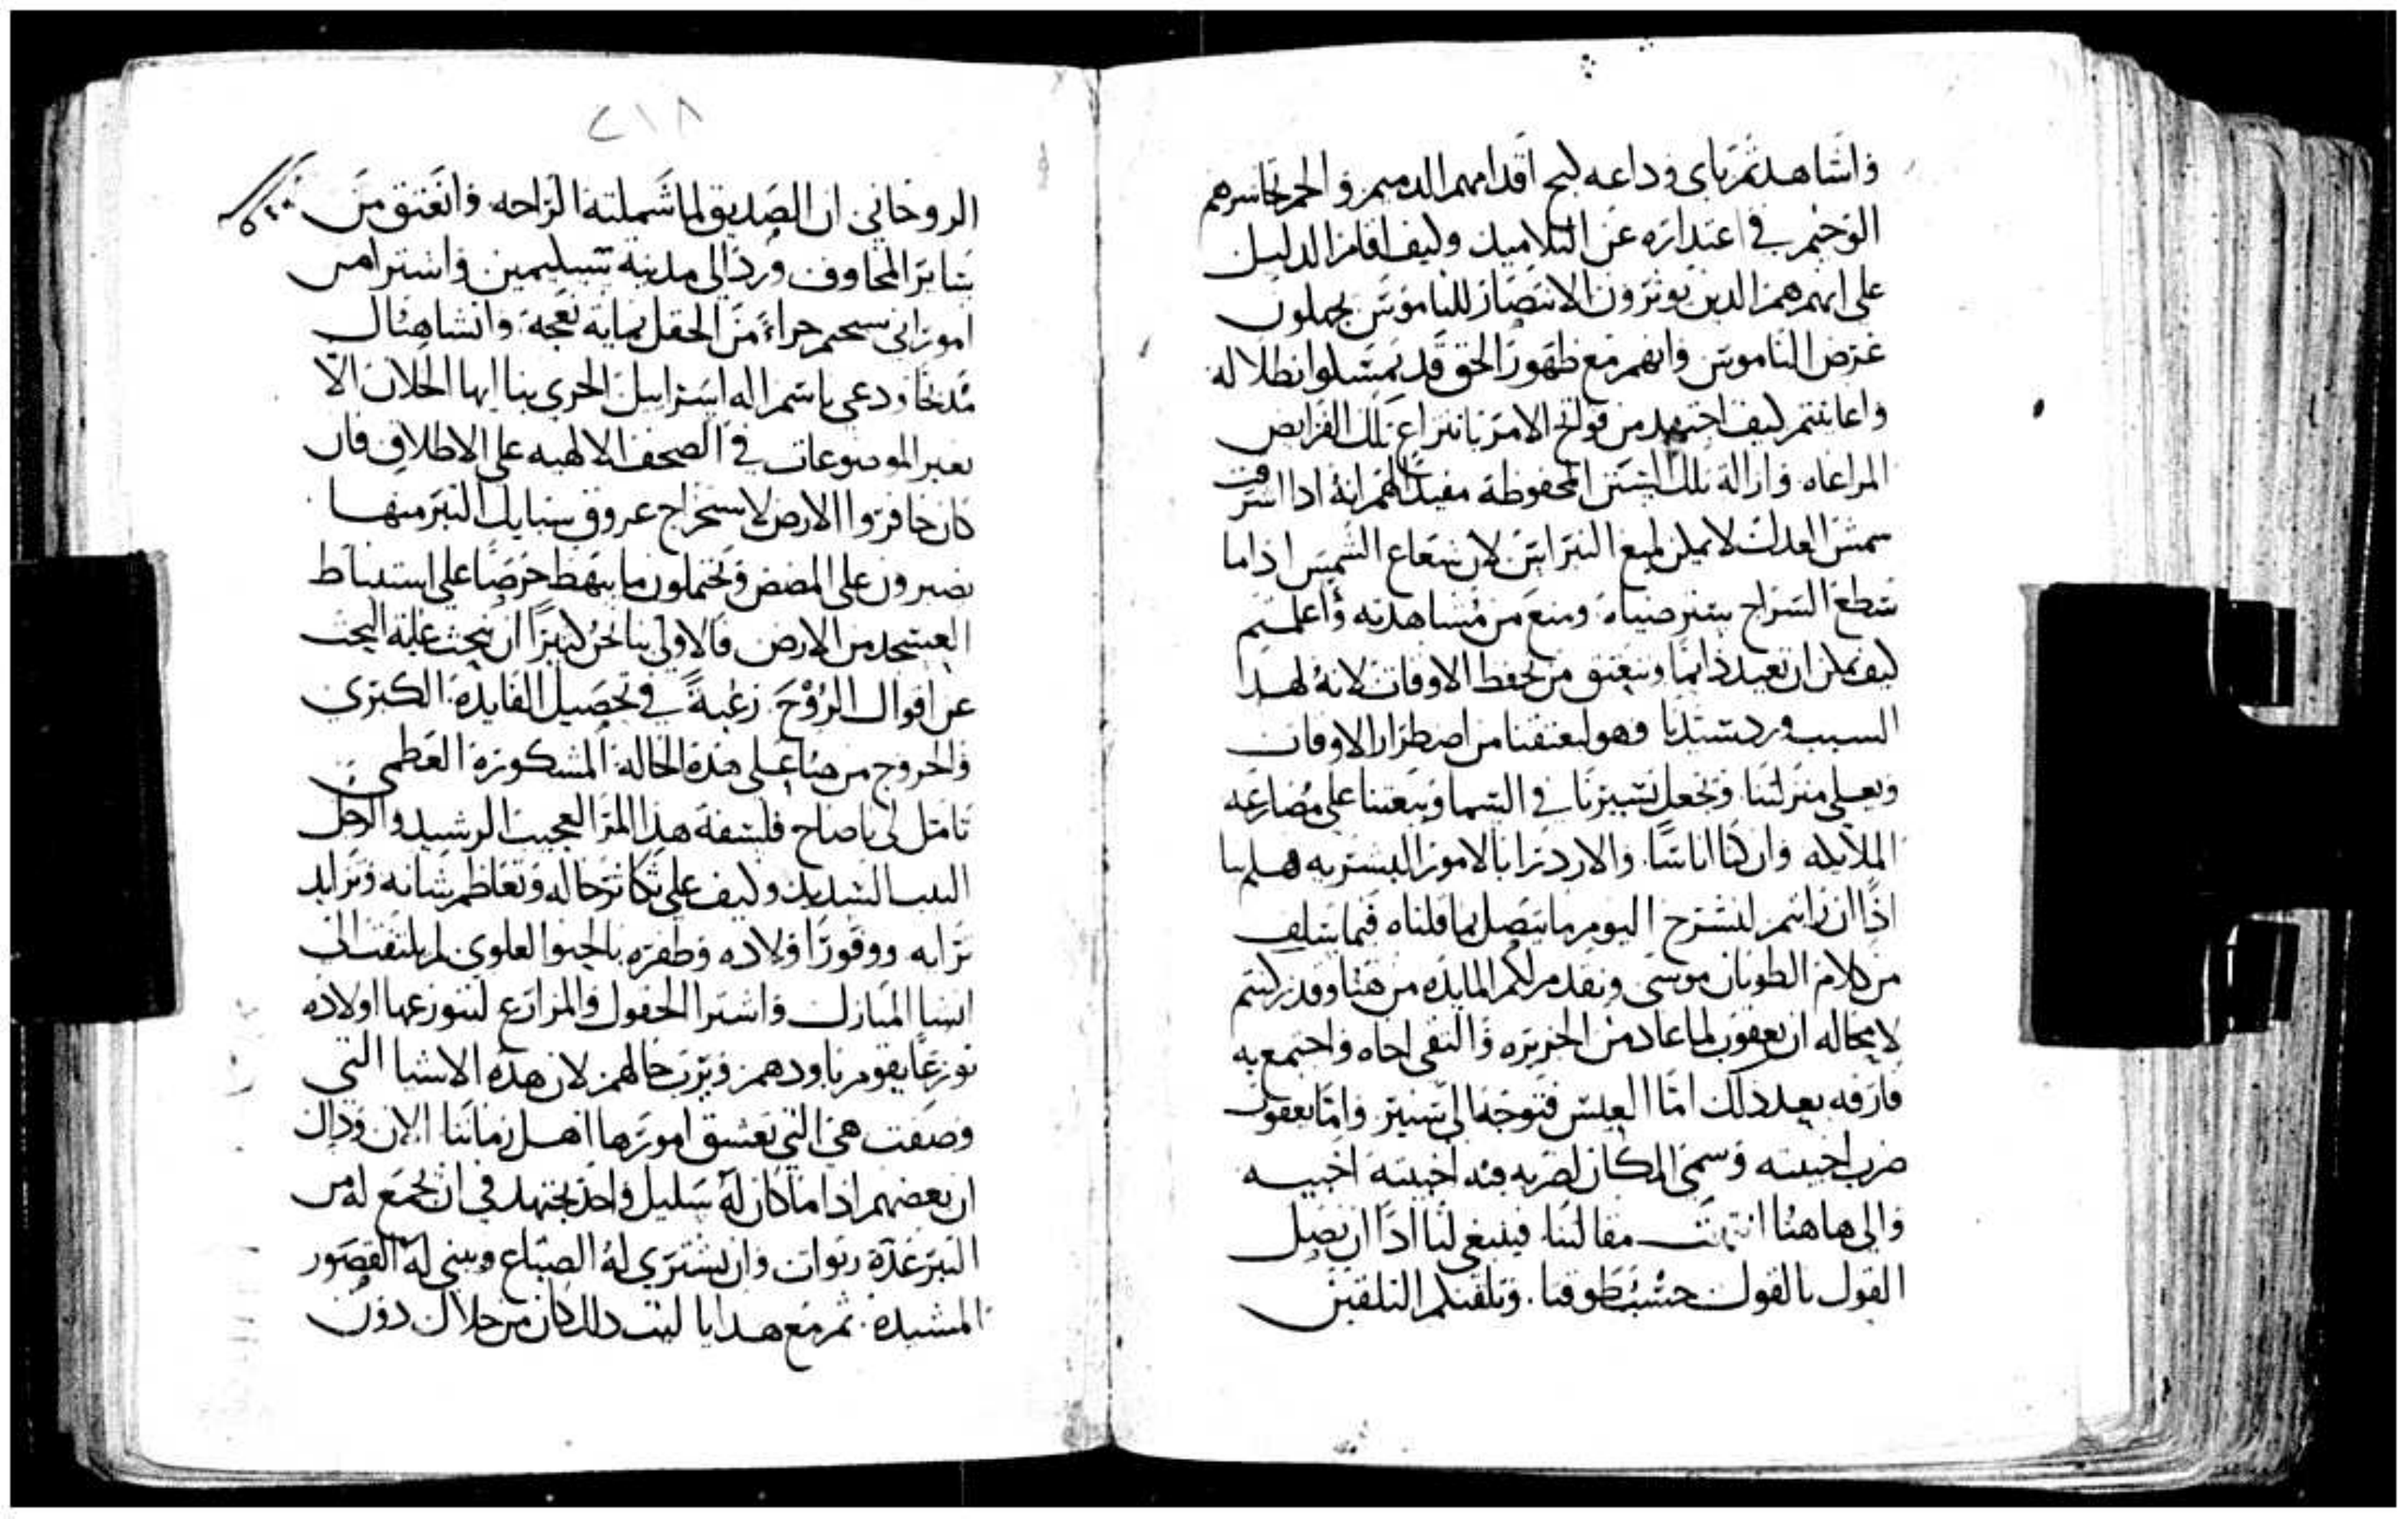 واشاهدتم باي وداعه كبح اقدامهم الدميم والجم تجاسرهم
الوخيم في اعتداره عن التلاميد وكيف اقام الدليل
على انهم هم الدين يوثرون الانتصار للناموس يجهلون
غرض الناموس وانهم مع ظهور الحق قد تمسكوا بظلاله
واعاينتم كيف اجتهد من فواتح الامر بانتزاع تلك الفرايض
المراعاه وازالة تلك السنن المحفوظة مفيدًا لهم انه ادا اشرقت
شمس العدل لا يمكن لمع النبراس لان شعاع الشمس اذا ما
سطع السراج ستر ضياه ومنع من مشاهدته وأعلمتم
كيف يمكن ان نعيد دايمًا ونعتق من تحفظ الاوقات لانه لهدا
السبب ورد سيدنا وهو ليعتقنا من اضطرار الاوقات
ويعلي منزلتنا ويجعل سيرتنا في السما ويبعتنا على مضارعه
الملايكه وان كنا اناسًا والازدرا بالامور البشريه هلم بنا
اذًا ان رايتم لنشرح اليوم ما يتصل بما قلناه فيما سلف
من كلام الطوبان موسى ونقدم لكم المايده من هنا وقد ركنتم
لا محاله ان يعقوب لما عاد من الجزيره والتقى اخاه واجتمع به
فارقه بعد دلك امّا العيس فتوجه الى سيير وامّا يعقوب
ضرب اخبيته وسمى المكان لضربه فيه اخبيته اخبيه
والى هاهنا انتهت مقالتنا فينبغي لنا اذًا ان نصل
القول بالقول حسب طوقنا. ونلقنكم التلقين
٢١٨
الروحاني ان الصديق لما شملته الراحه وانعتق من
ساير المخاوف ورد الى مدينة سليمين واشترا من
امور ابي سحيم جزاءً من الحقل بماية نعجة وانشا هناك
مدبحًا ودعي باسم اله اسراييل الحري بنا ايها الخلان الّا
نعبر الموضوعات في الصحف الالهيه على الاطلاق فان
كان حافروا الارض لاستخراج عروق سبايك التبر منها
يصبرون على المضض ويحتملون ما يبهظ حرصًا على استنباط
العسجد من الارض فالاولى بنا نحن كثيرًا ان نبحث غاية البحث
عن اقوال الرُوْح رغبةً في تحصيل الفايده الكبرى
والخروج من هنا على هذه الحالة المشكورة العظمى
تامل لي يا صاح فلسفة هذا المرا العجيب الرشيد والرجل
اللبيب الشديد وكيف على تكاثر حاله وتعاظم شانه وتزايد
ترايه ووفور اولاده وظفره بالحبو العلوي لم يلتفت الى
ابتنا المنازل واشترا الحقول والمزارع لتتوزعها اولاده
توزعًا يقوم باودهم ويرب حالهم لان هده الاشيا التي
وصفت هي التي تعشق امورها اهل زماننا الان ودلك
ان بعضهم ادا ما كان له سليل واحد يجتهد في ان يجمع له من
التبر عدة ربوات وان يشتري له الضياع ويبني له القصور
المشيده. ثم مع هدايا ليت دلك كان من حلال دون